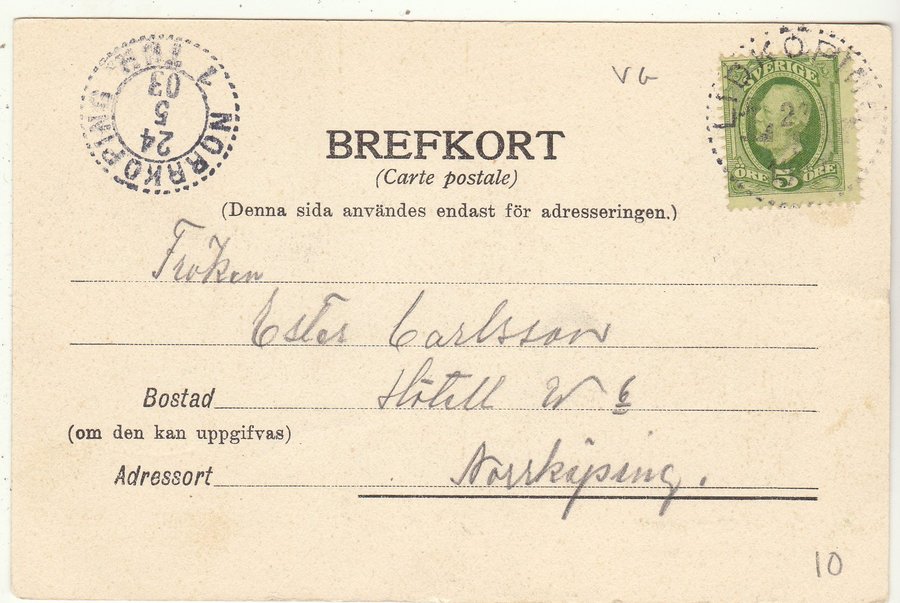 NORRKÖPING
24
5
03
7 TUR
VG
LIDKÖPING
SVERIGE
5
ÖRE ÖRE
BREFKORT
(Carte postale)
(Denna sida användes endast för adresseringen.)
Fröken
Ester Carlsson
Bostad Hôtell W 6
(om den kan uppgifvas)
Adressort Norrköping.
10